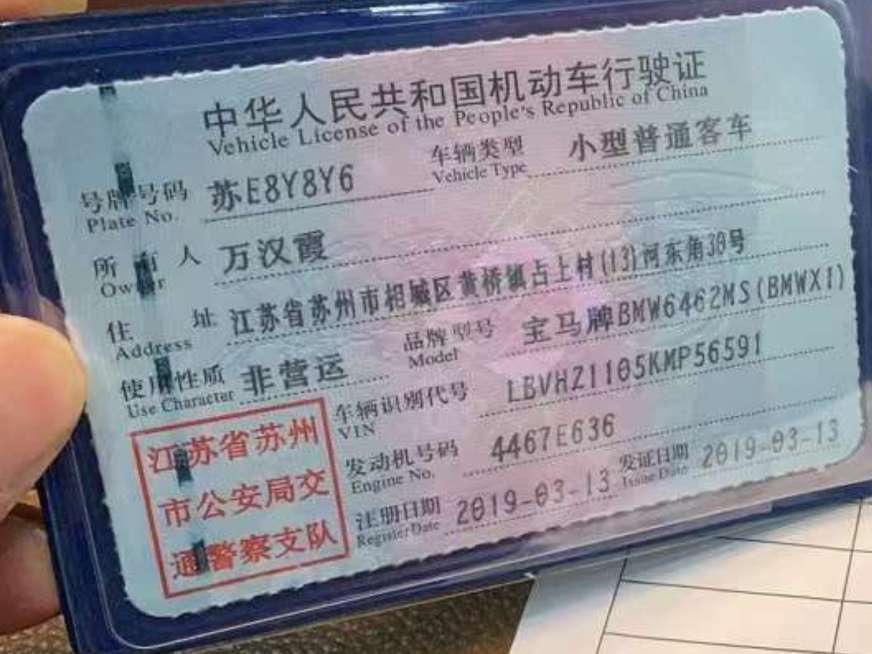 中华人民共和国机动车行驶证
Vehicle License of the People's Republic of China
号牌号码 苏E8Y8Y6 车辆类型 小型普通客车
Plate No. Vehicle Type
所有人 万汉霞
Owner
住址 江苏省苏州市相城区黄桥镇占上村(13)河东角38号
Address
使用性质 非营运 品牌型号 宝马牌BMW6462MS(BMWX1)
Use Character Model
车辆识别代号 LBVHZ1105KMP56591
VIN
发动机号码 4467E636
Engine No.
注册日期 2019-03-13 发证日期 2019-03-13
Register Date Issue Date
江苏省苏州
市公安局交
通警察支队